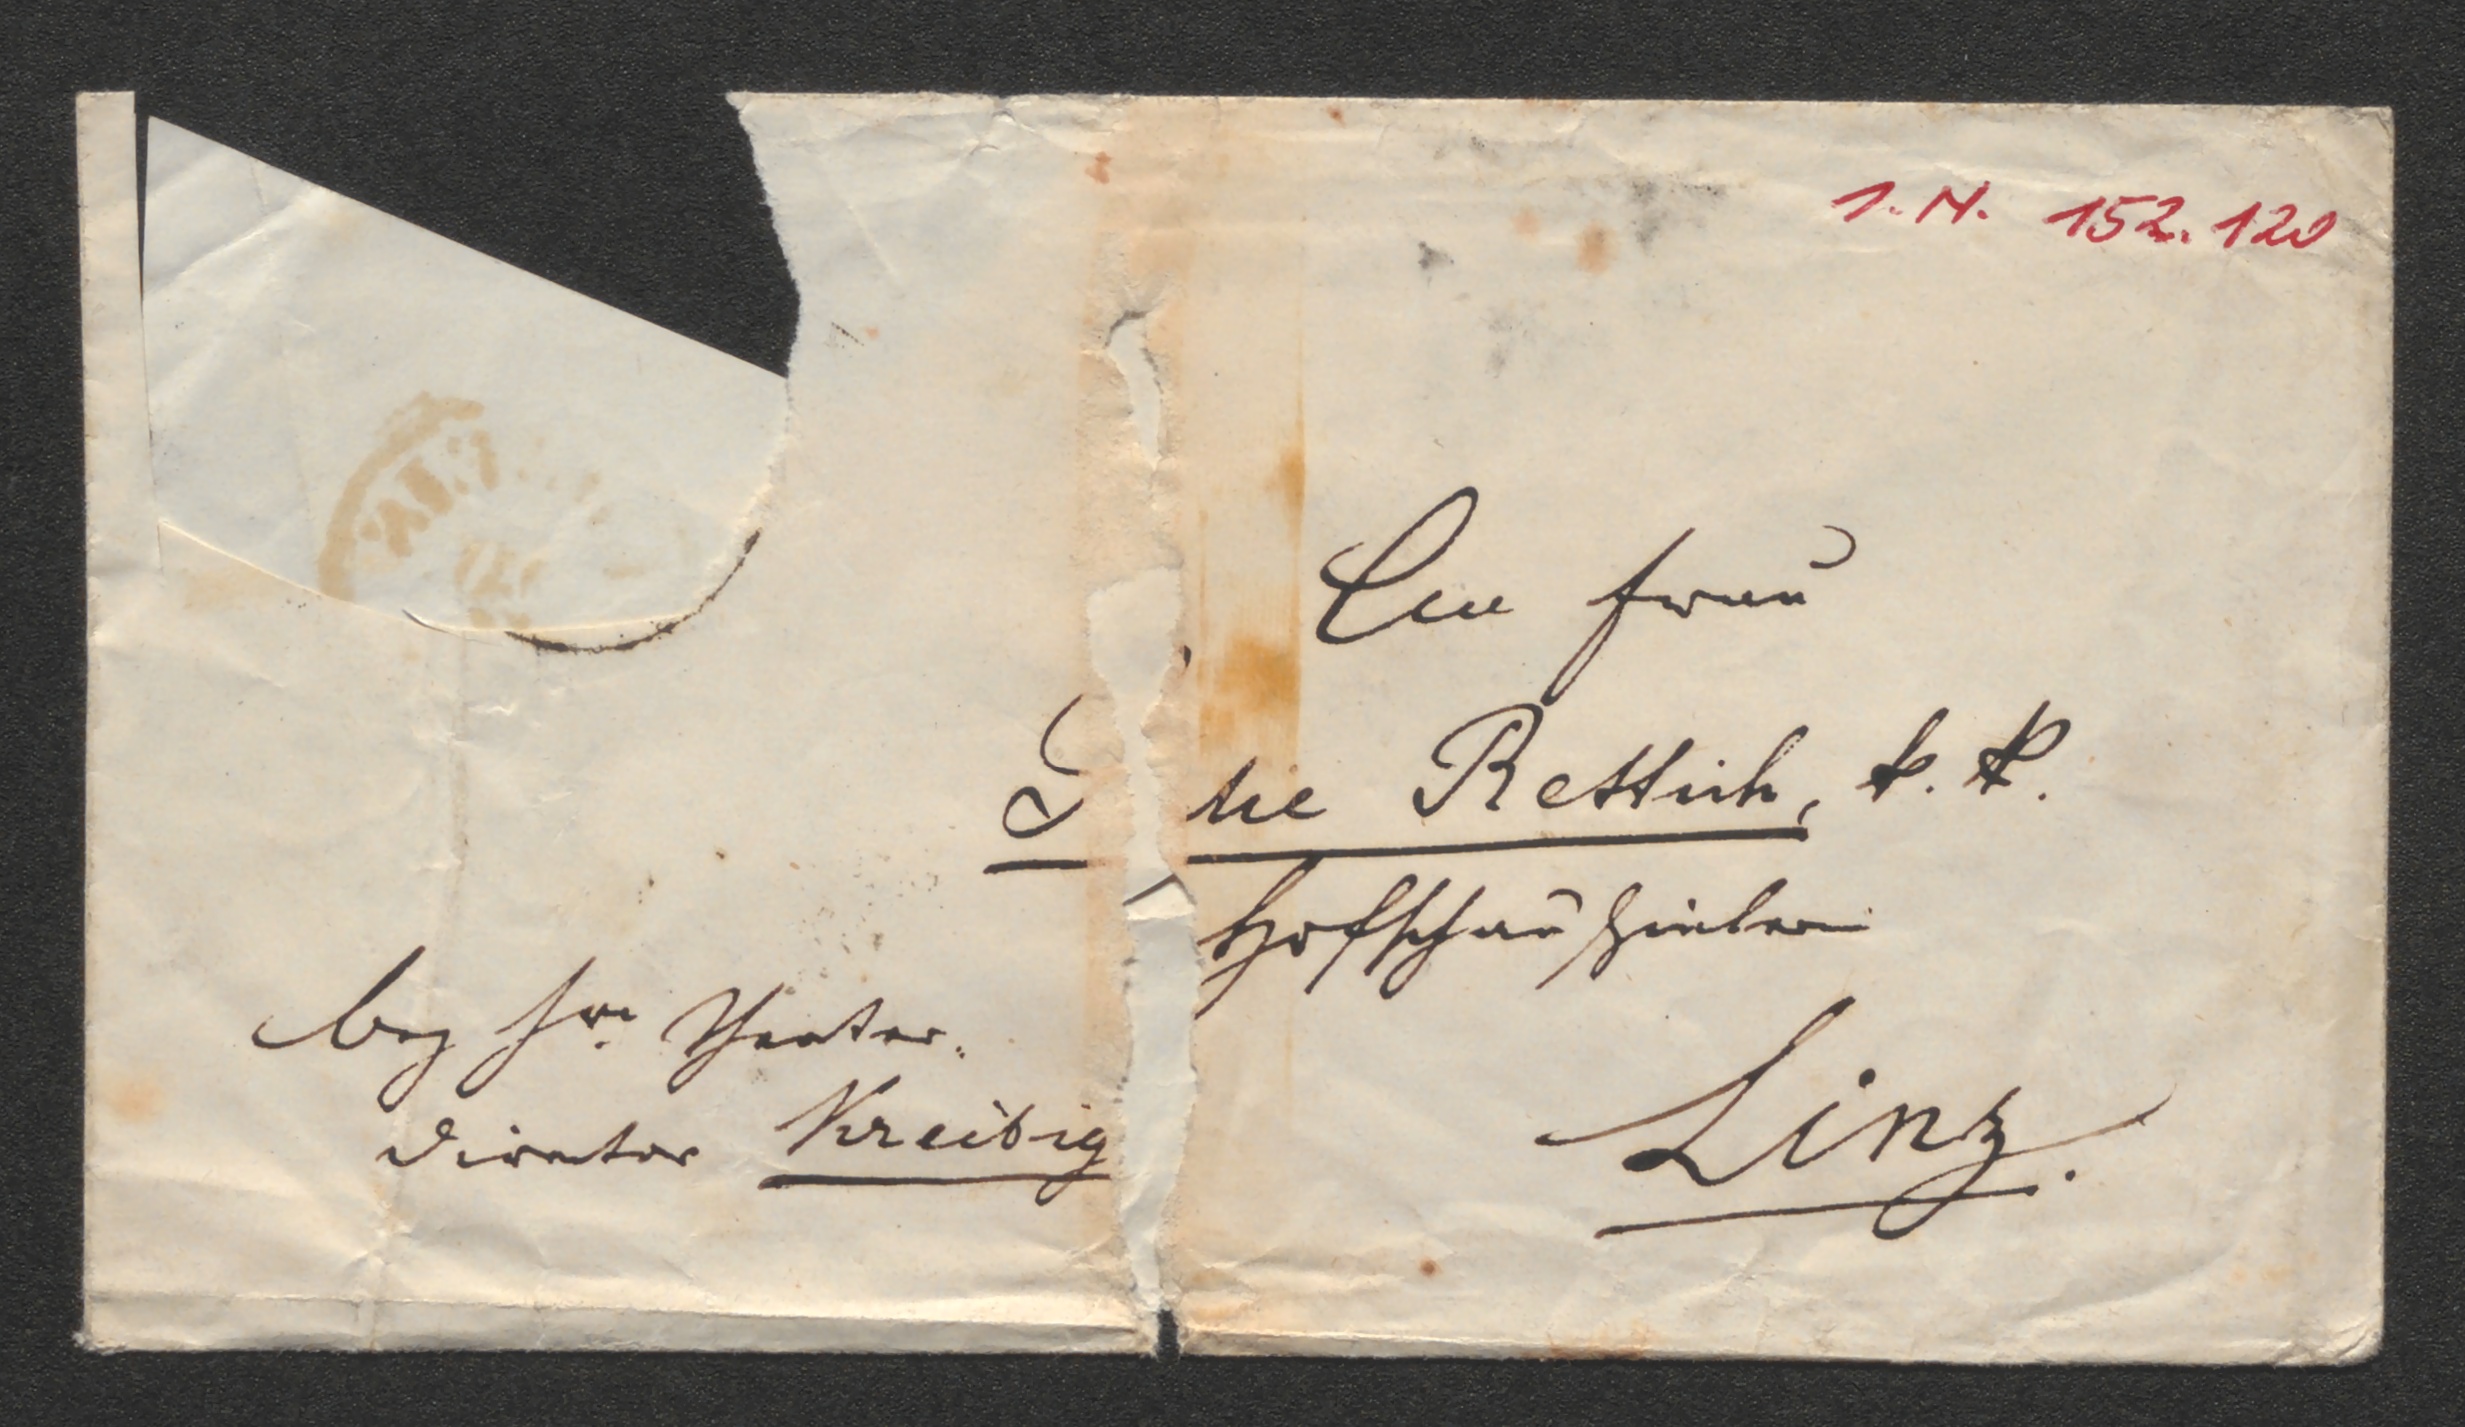 I. N. 152.120
An Frau
J lie Rettich, k. k.
Hofschauspielerin
bey Hrn Theater-
director Kreibig
Linz.